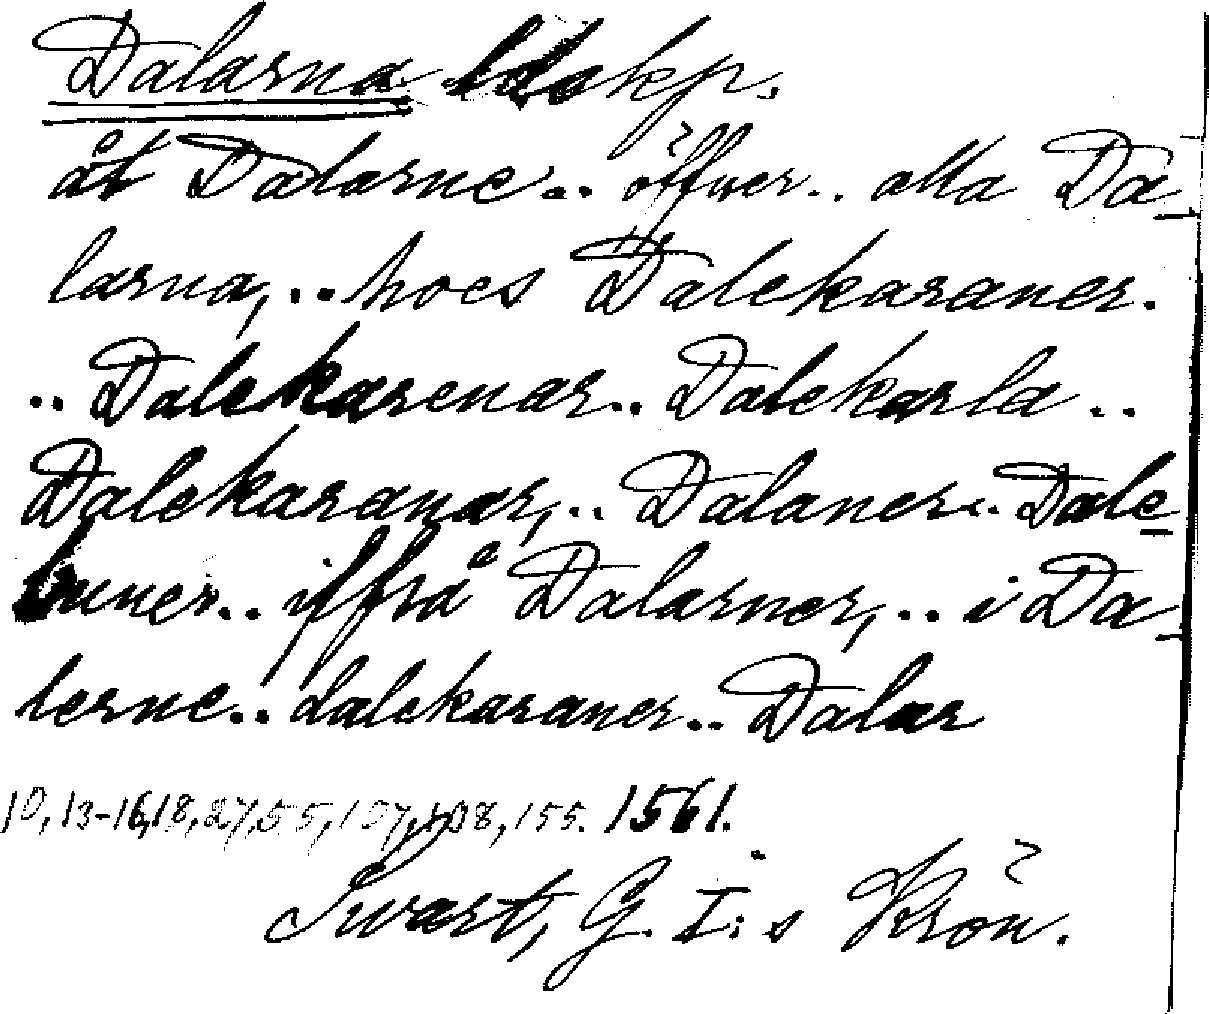 Dalarna ldskp.
åt Dalarne.. öffwer.. alla Da-
larna,.. hoes Dalekaraner.
.. Dalekarenar.. Dalekarla ..
Dalekaranar,.. Dalaner... Dale-
.. iffrå Dalarner,.. i Da-
lerne.. dalekaraner.. Dalar
10, 13-16, 18, 27, 55, 107, 108, 155. 1561.
Swart, G. I:s Krön.